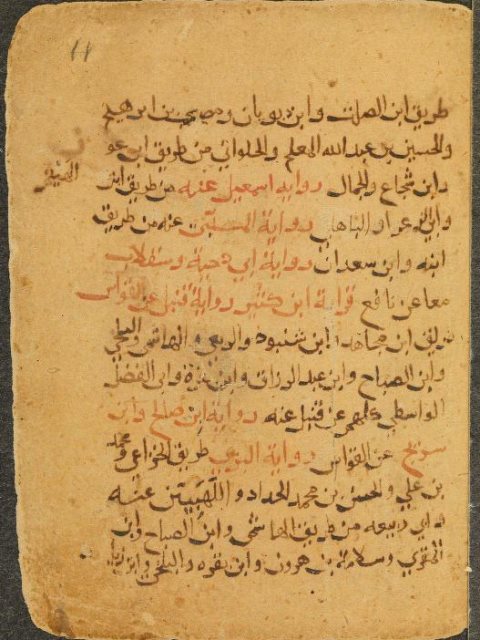 ١١
طريق ابن الصلت وابن بويان و بن ابرهيم
والحسين بن عبد الله المعلم والحلواني من طريق ابي عو
وابن شجاع والجمال رواية اسمعيل عنه من طريق ابن
عنه من طريق رواية المسيبي
ابنه وابن سعدان رواية ابي دحية وسقلاب
معا عن نافع قراءة ابن كثير رواية قنبل عن القواس
طريق ابن مجاهد وابن شنبوذ والربعي والهاشمي والبلخي
وابن الصباح وابن عبد الرزاق وابن بقرة وابي الفضل
الواسطي كلهم عن قنبل عنه رواية ابن صالح وابن
شريح عن القواس رواية البزي طريق الخزاعي ومحمد
بن علي والحسن بن محمد الحداد و اللهبيين عنه
وابي ربيعه من طريق الهاشمي وابن الصباح وابن
المقري وسلامة بن هرون وابن بقره والبلخي وابن زياد